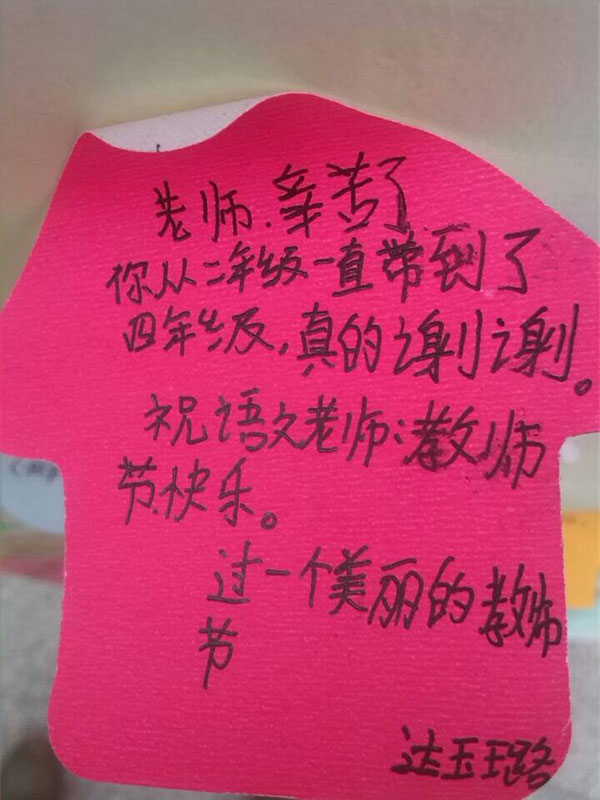 老师.辛苦了
你从二年级一直带到了
四年级,真的谢谢。
祝语文老师:教师
节快乐。
过一个美丽的教师
节
达玉璐